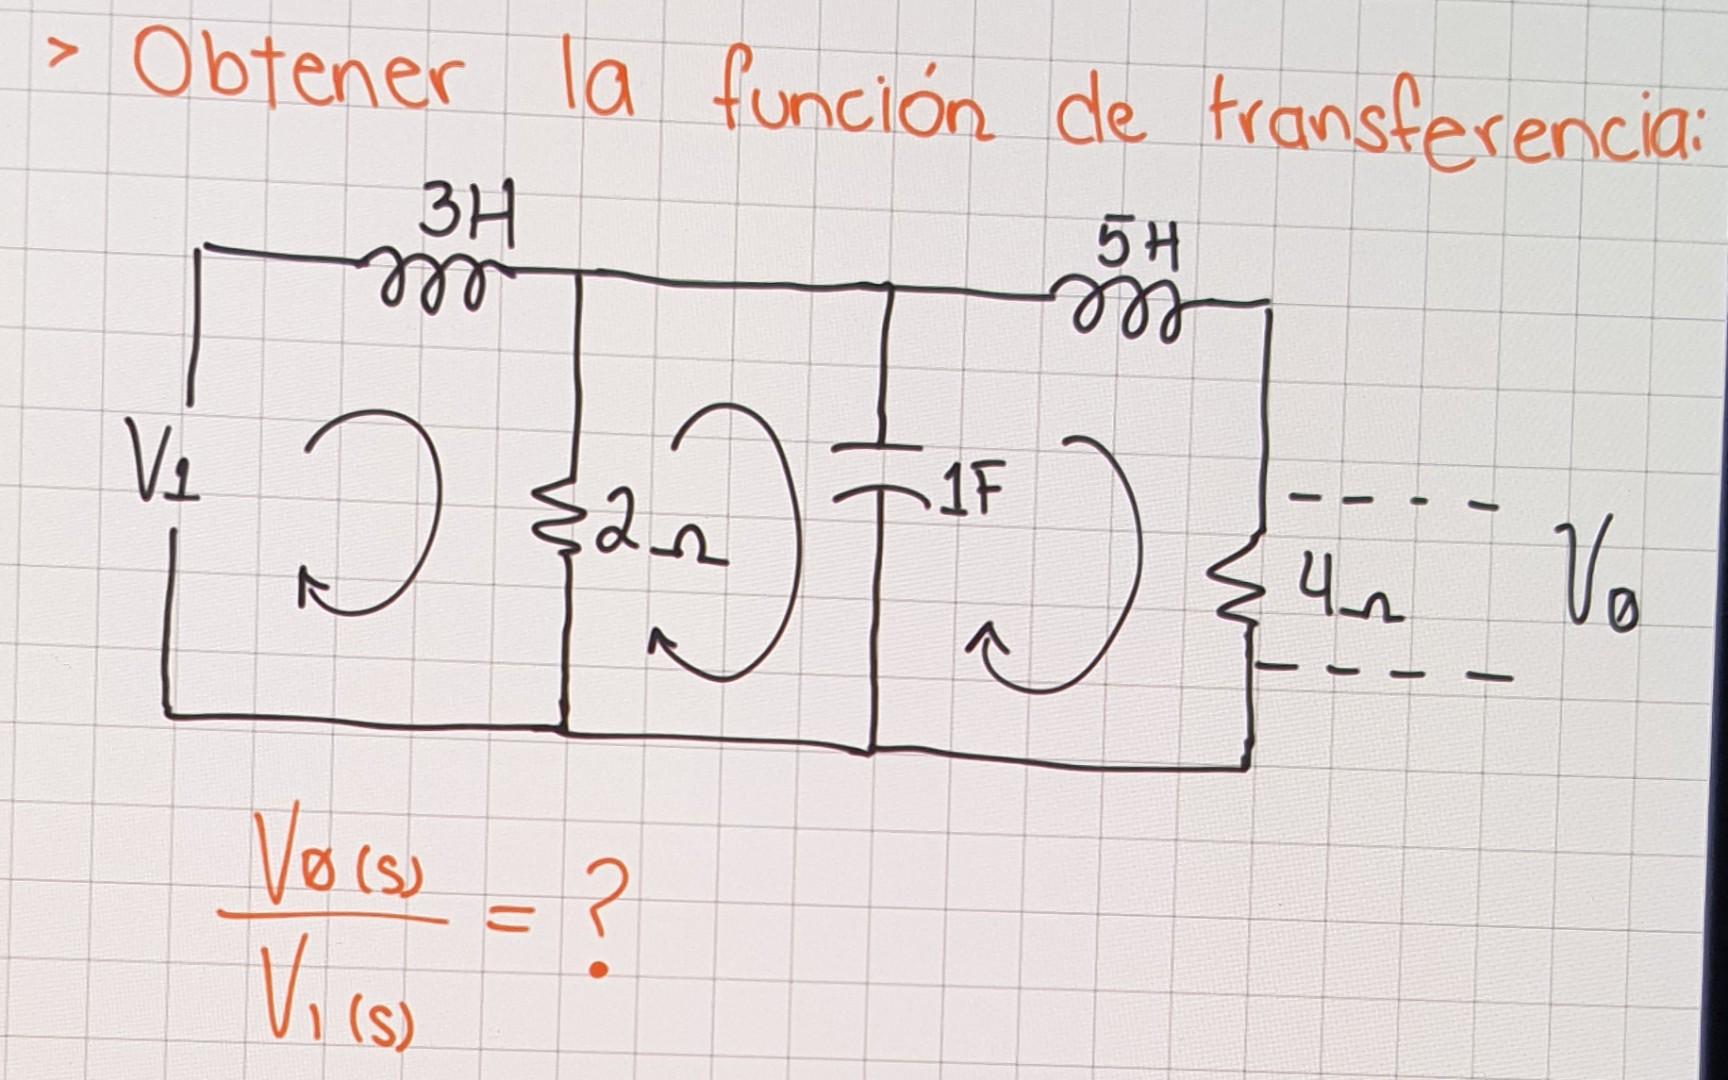 > Obtener la función de transferencia:
3H
5H
V1
2Ω
1F
4Ω
Vø
Vø(s)
V1(s)
= ?